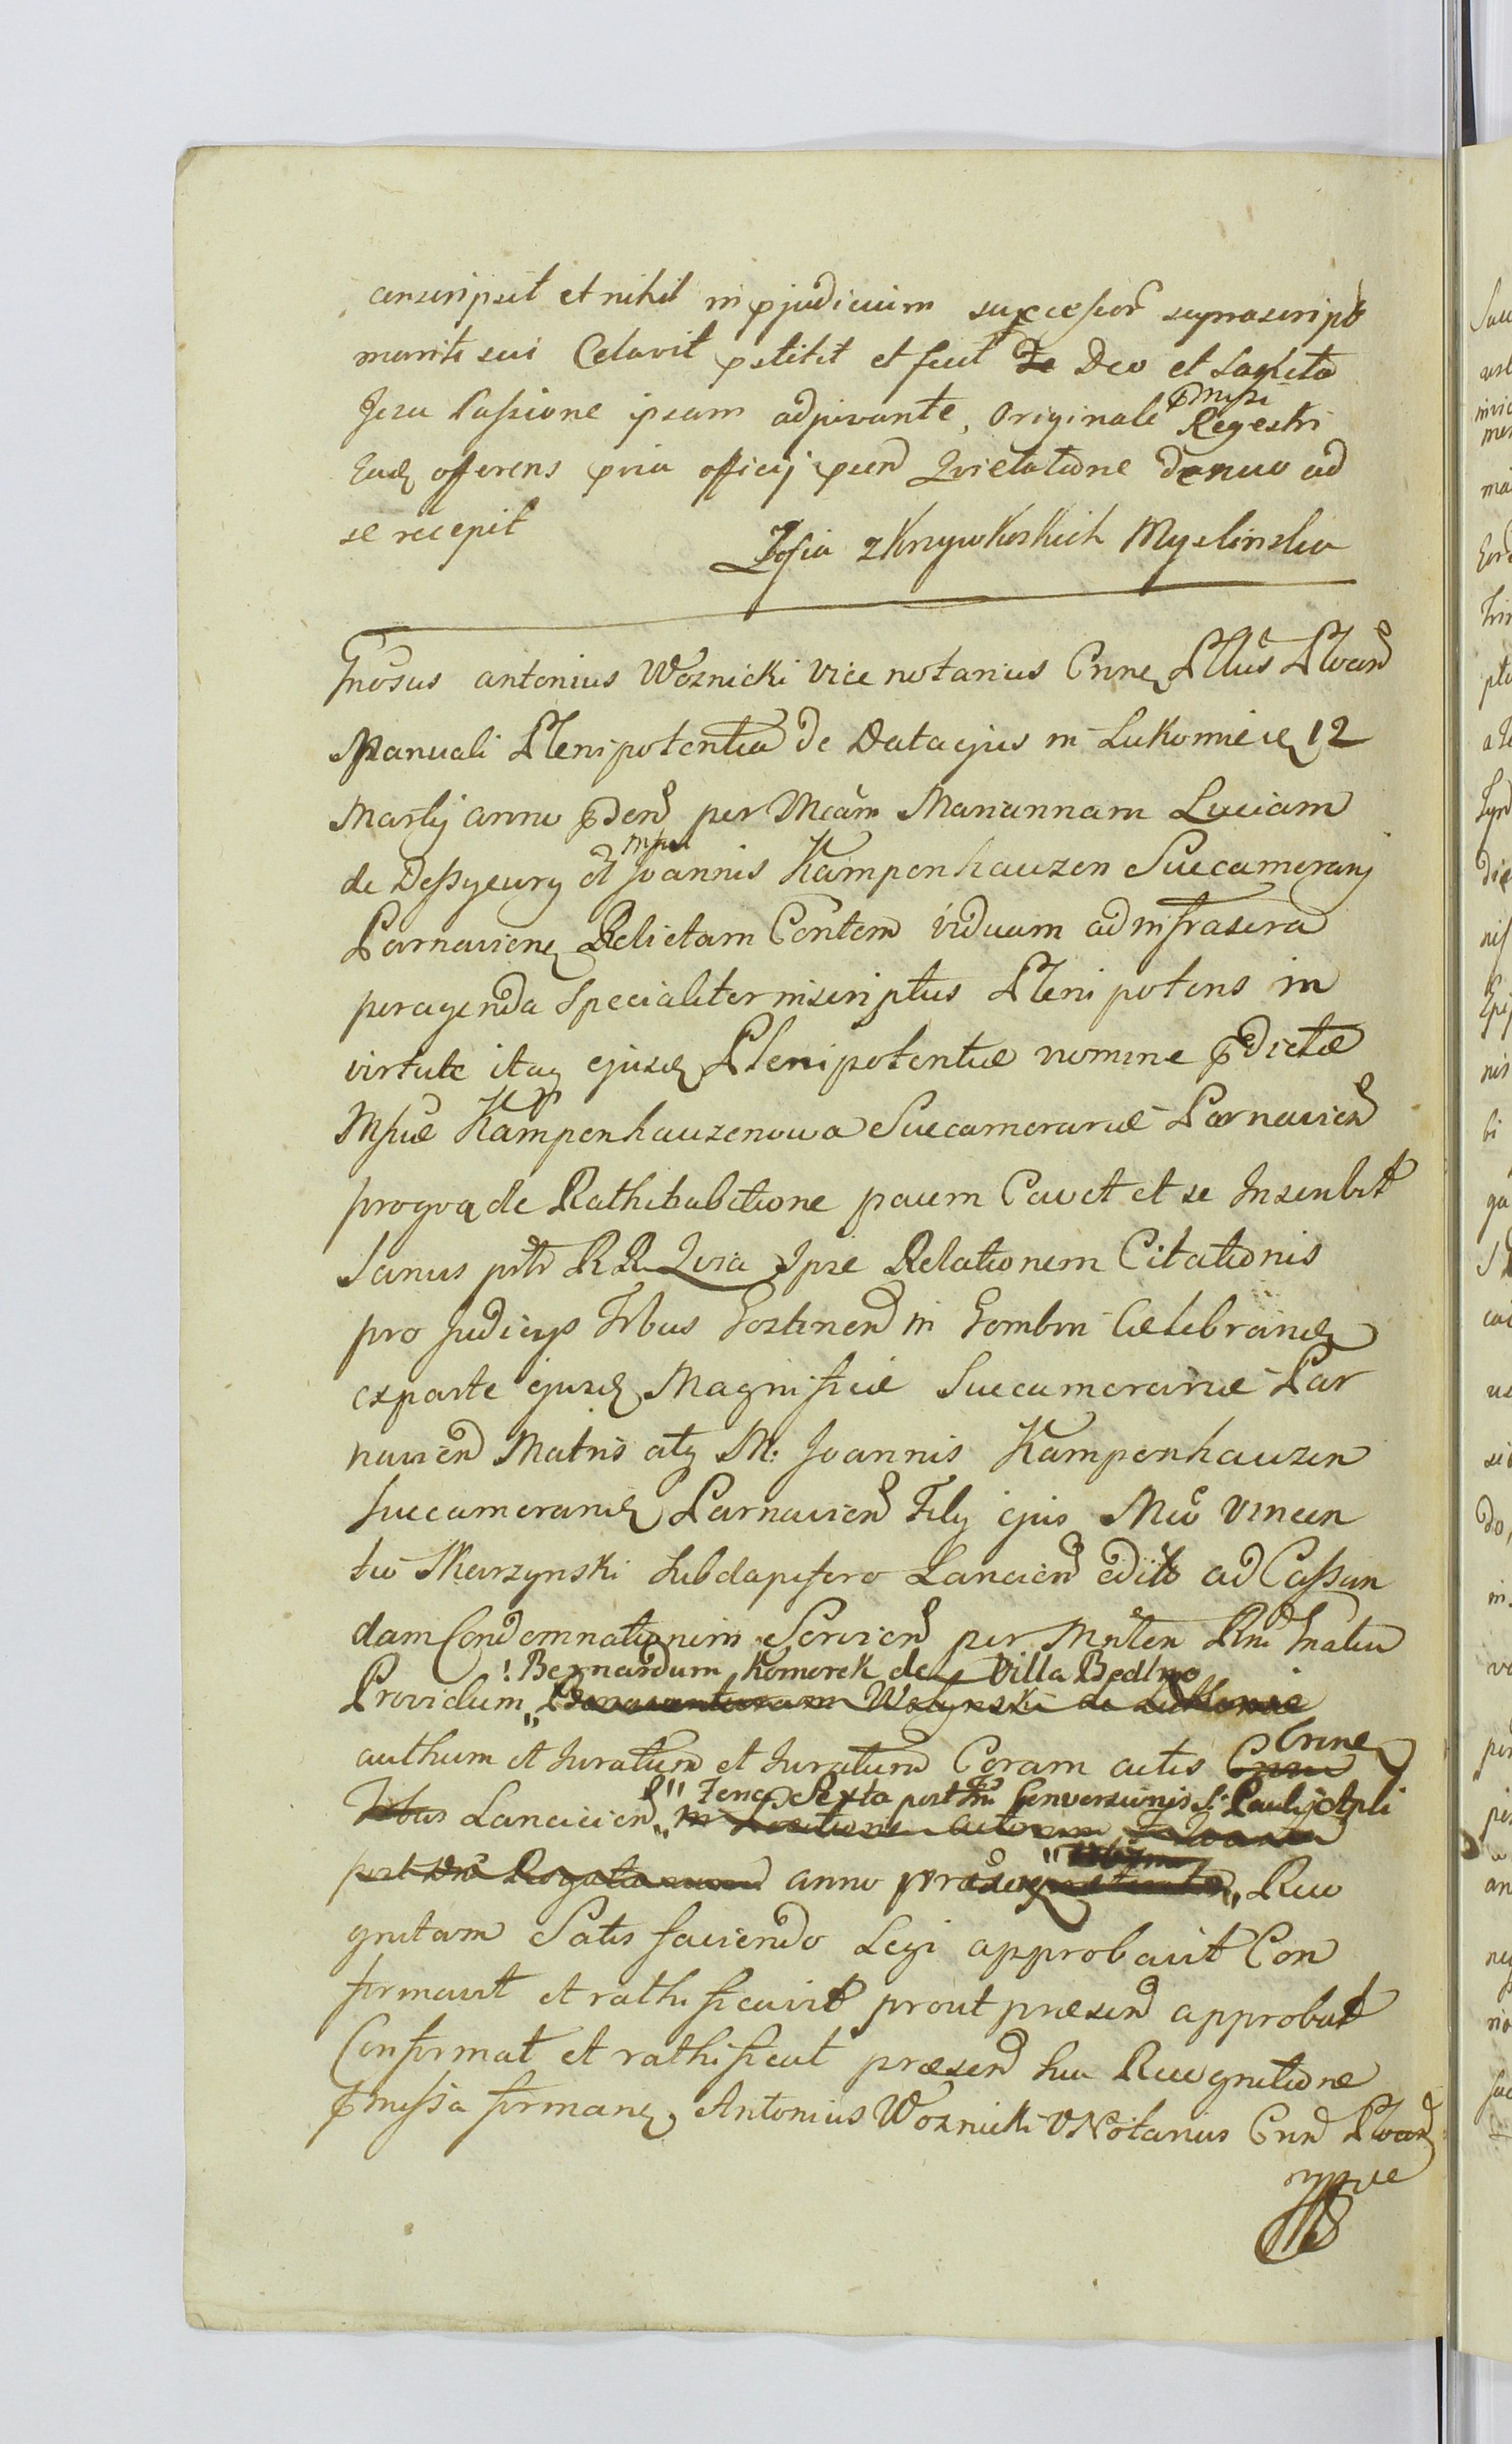 conscripsit et nihil in pjudicium successor suprascript
mariti sui Celavit pstitit et fecit De Deo et Sancta
Jesu Passione ipsam adjuvante, Originale pmissi Regestri
Ead offerens pvia officij psen Quietatione denuo ad
se recepit
Zofia z Krzywkoskich Myslinska
Gnosus antonius Woznicki Vice notarius Crne Pllus Ploceń
Manuali Plenipotentia de Data ejus in Lukomie 12
Martij anno pden per Mcam Mariannam Luciam
de Deszyeury et Mfici Joannis Kampenhauzen Succamerarij
Parnaviene Relictam Contem viduam ad infrascra
peragenda Specialiter inscriptus Plenipotens in
virtute itaq ejusd Plenipotentiæ nomine pdictæ
Mficæ Kampenhauzenowa Succamerariæ Parnavien
pro qva de Rathihabitione pacem Cavet et se Inscribit
Sanus ptr RR Quia Ipse Relationem Citationis
pro Judicijs Trbus Gostinen in Gombin Celebrand
ex parte ejusd Magnificæ Succamerariæ Par
navien Matris atq M: Joannis Kampenhauzen
succamerarid Parnavien Filij ejus Mco Vincen
tio Skarzynski Subdapifero Lancicien edito ad Cassan
dam Condemnationem Servien per Mnsten Rni Gnalem
! Bernardum Komorek de Villa Bedlno
Providum
authum et Juratum et Juratum Coram actis Crne
Lancicien Feria Sexta post Fm Conversionis S. Pauli Apli
anno Reco
gnitam Satis faciendo Legi approbavit Con
firmavit et rathificavit prout præsen approbat
Confirmat et rathificat præsen sua Recognitione
pmissa firmand Antonius Woznicki VNotarius Crn Ploceń
mpve